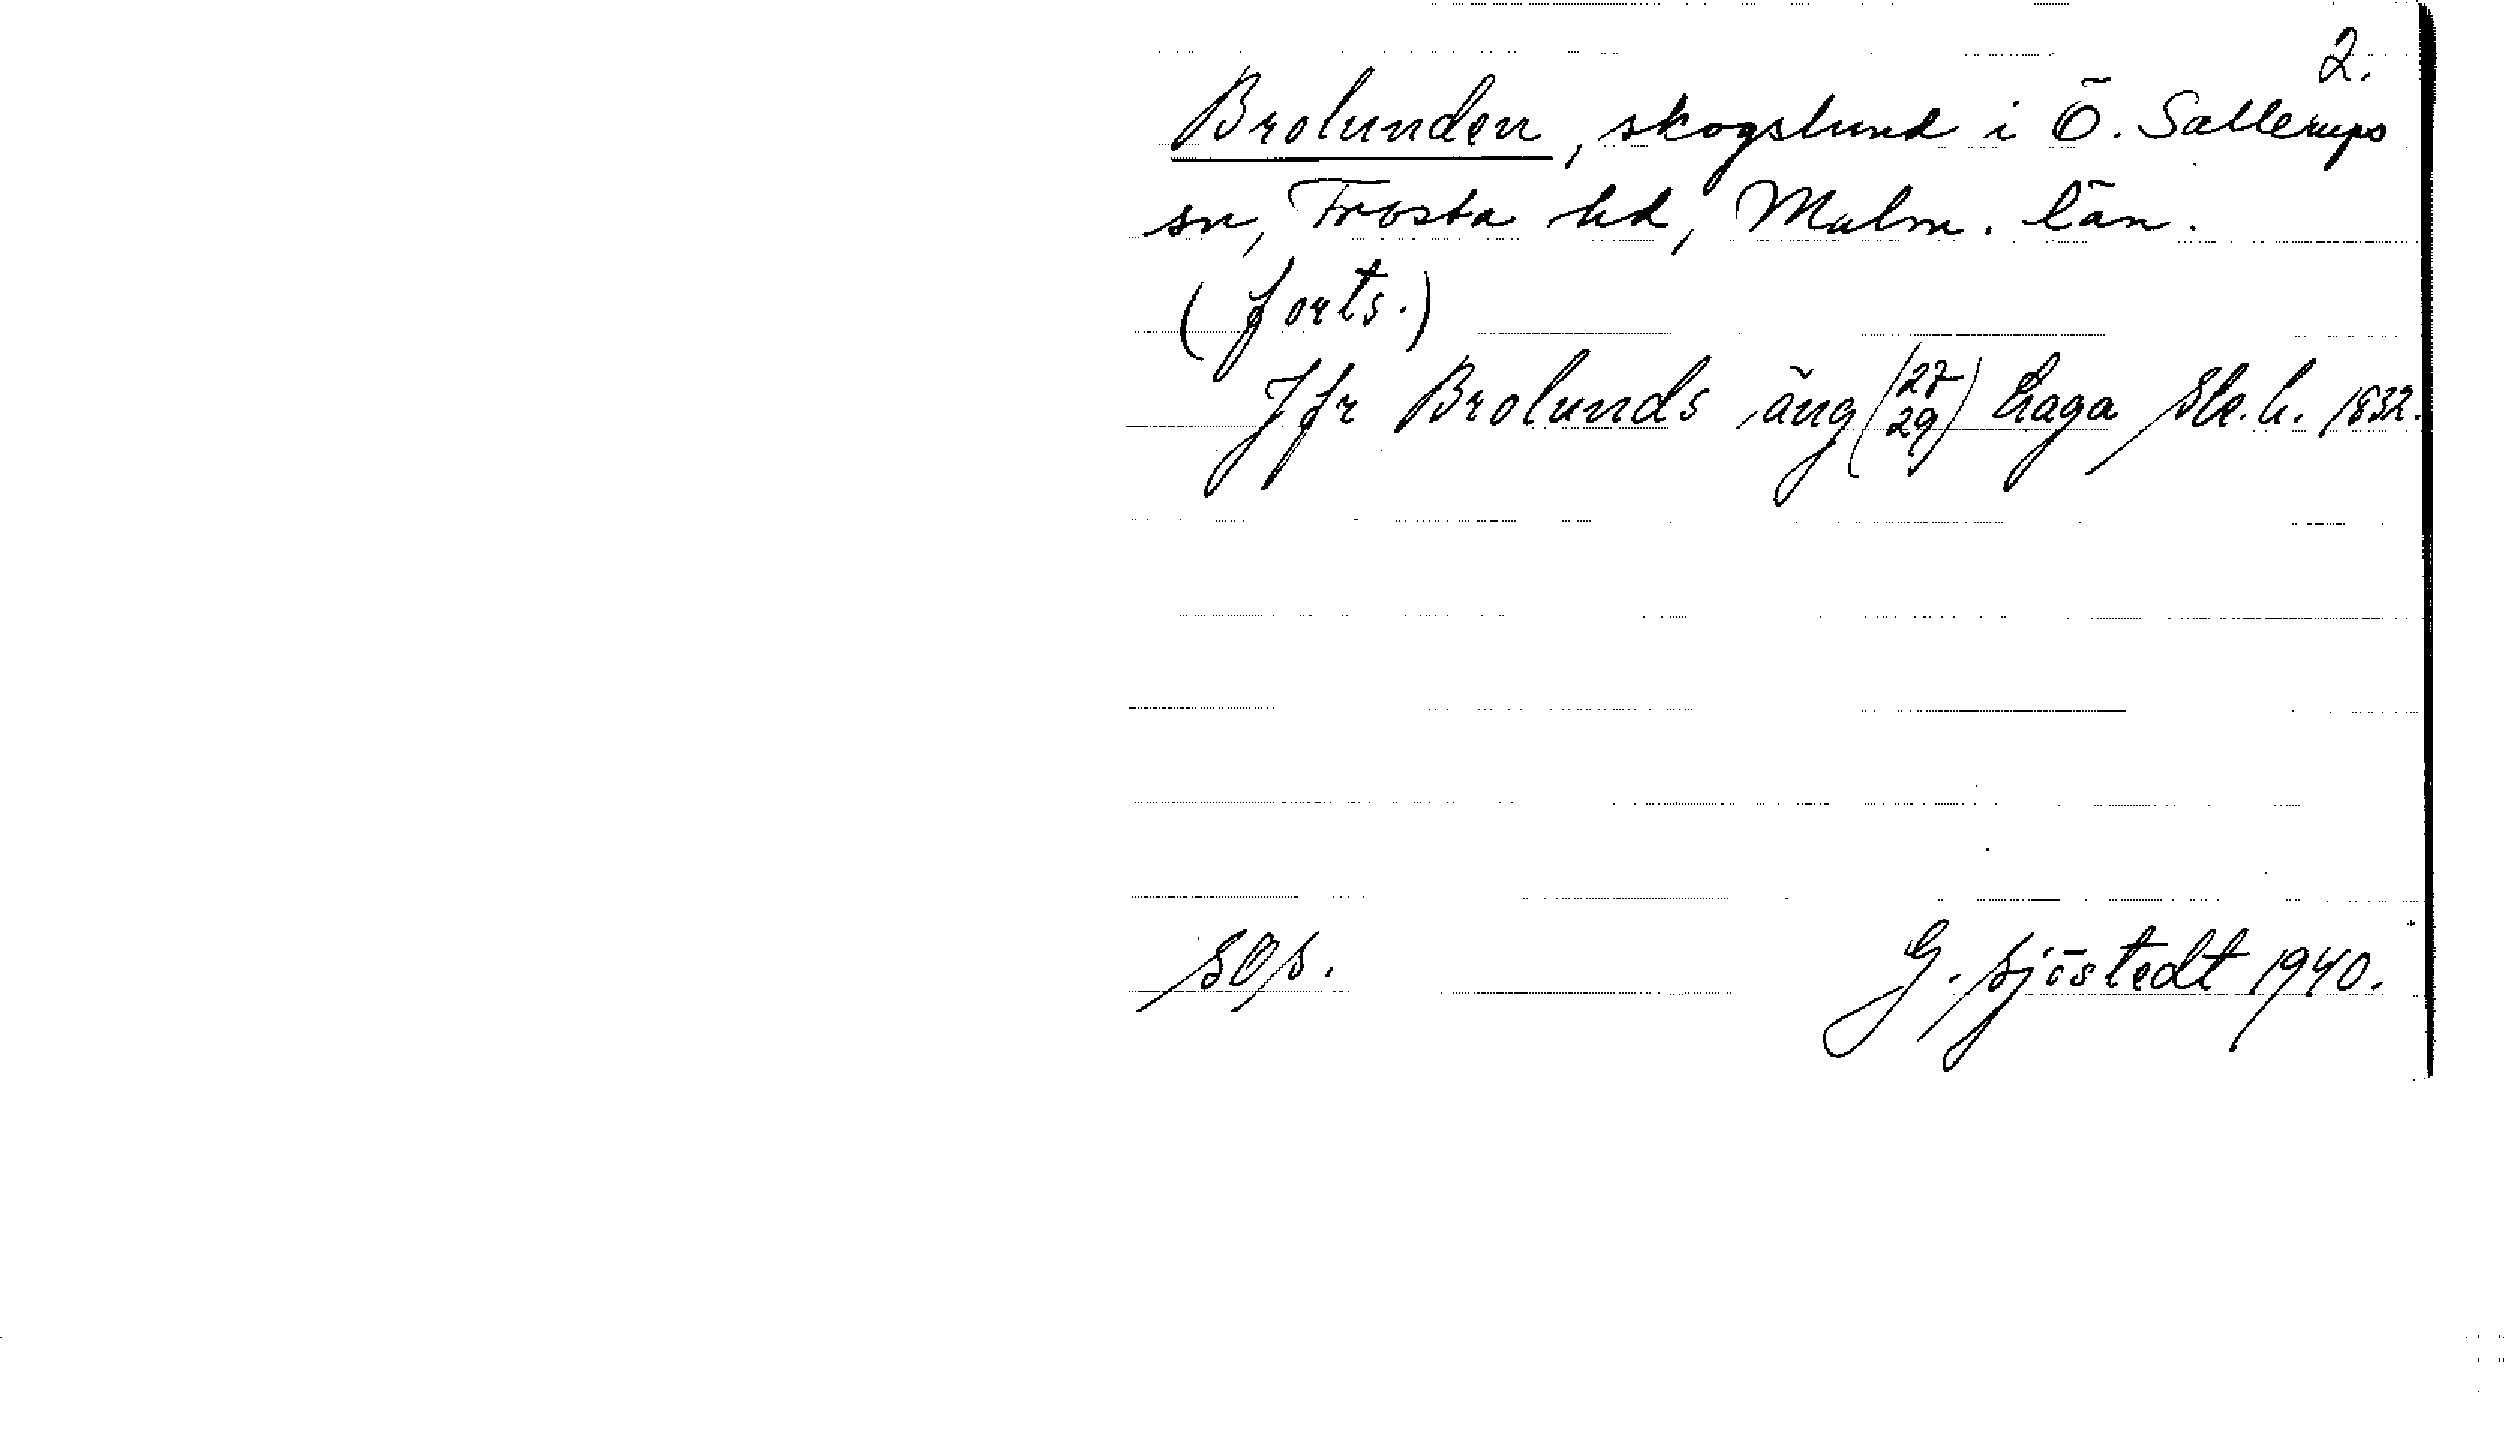 2.
Brolunden, skogslund i Ö. Sallerups
sn, Frosta hd, Malm. län.
(forts.)
Jfr Brolunds äng (27 29) haga Ske. h. 1832.
SOS.
G. Sjöstedt 1940.